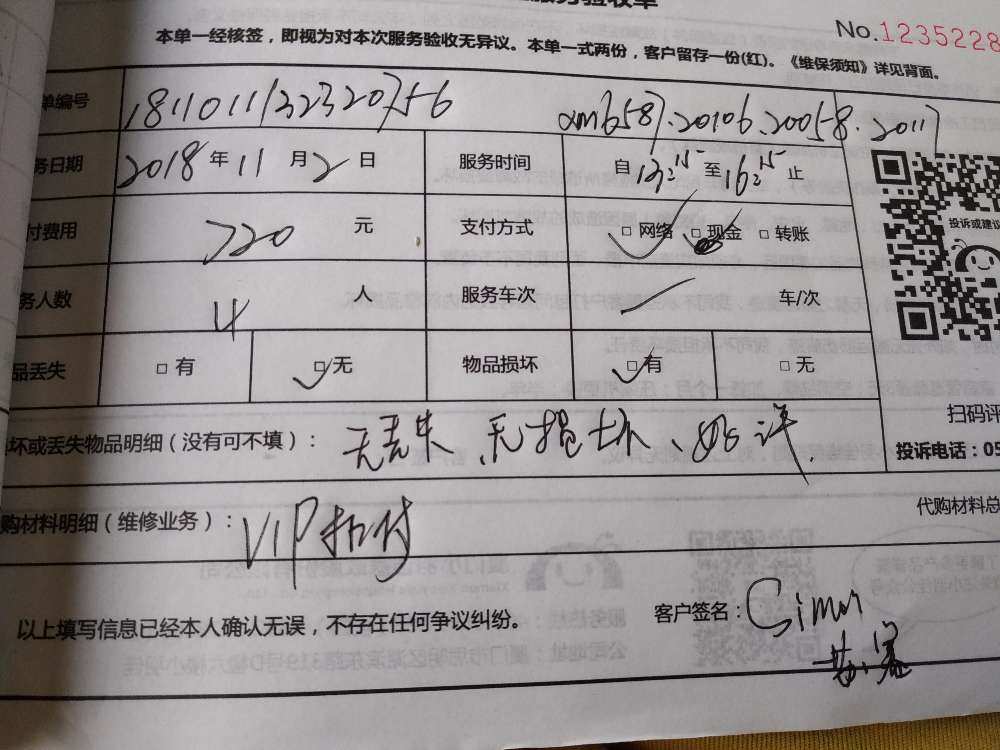 服务验收单
No.1235228
本单一经核签，即视为对本次服务验收无异议。本单一式两份，客户留存一份(红)。《维保须知》详见背面。
单编号
务日期 2018年11月2日 服务时间 自12:15至16:15止
付费用 220元 支付方式 □网络 □现金 □转账
务人数 4人 服务车次 车/次
品丢失 □有 □无 物品损坏 □有 □无
投诉或建议
扫码评
投诉电话：05
坏或丢失物品明细（没有可不填）：无丢失、无损坏、好评
购材料明细（维修业务）：VIP扣付
代购材料总
以上填写信息已经本人确认无误，不存在任何争议纠纷。
客户签名：Simon